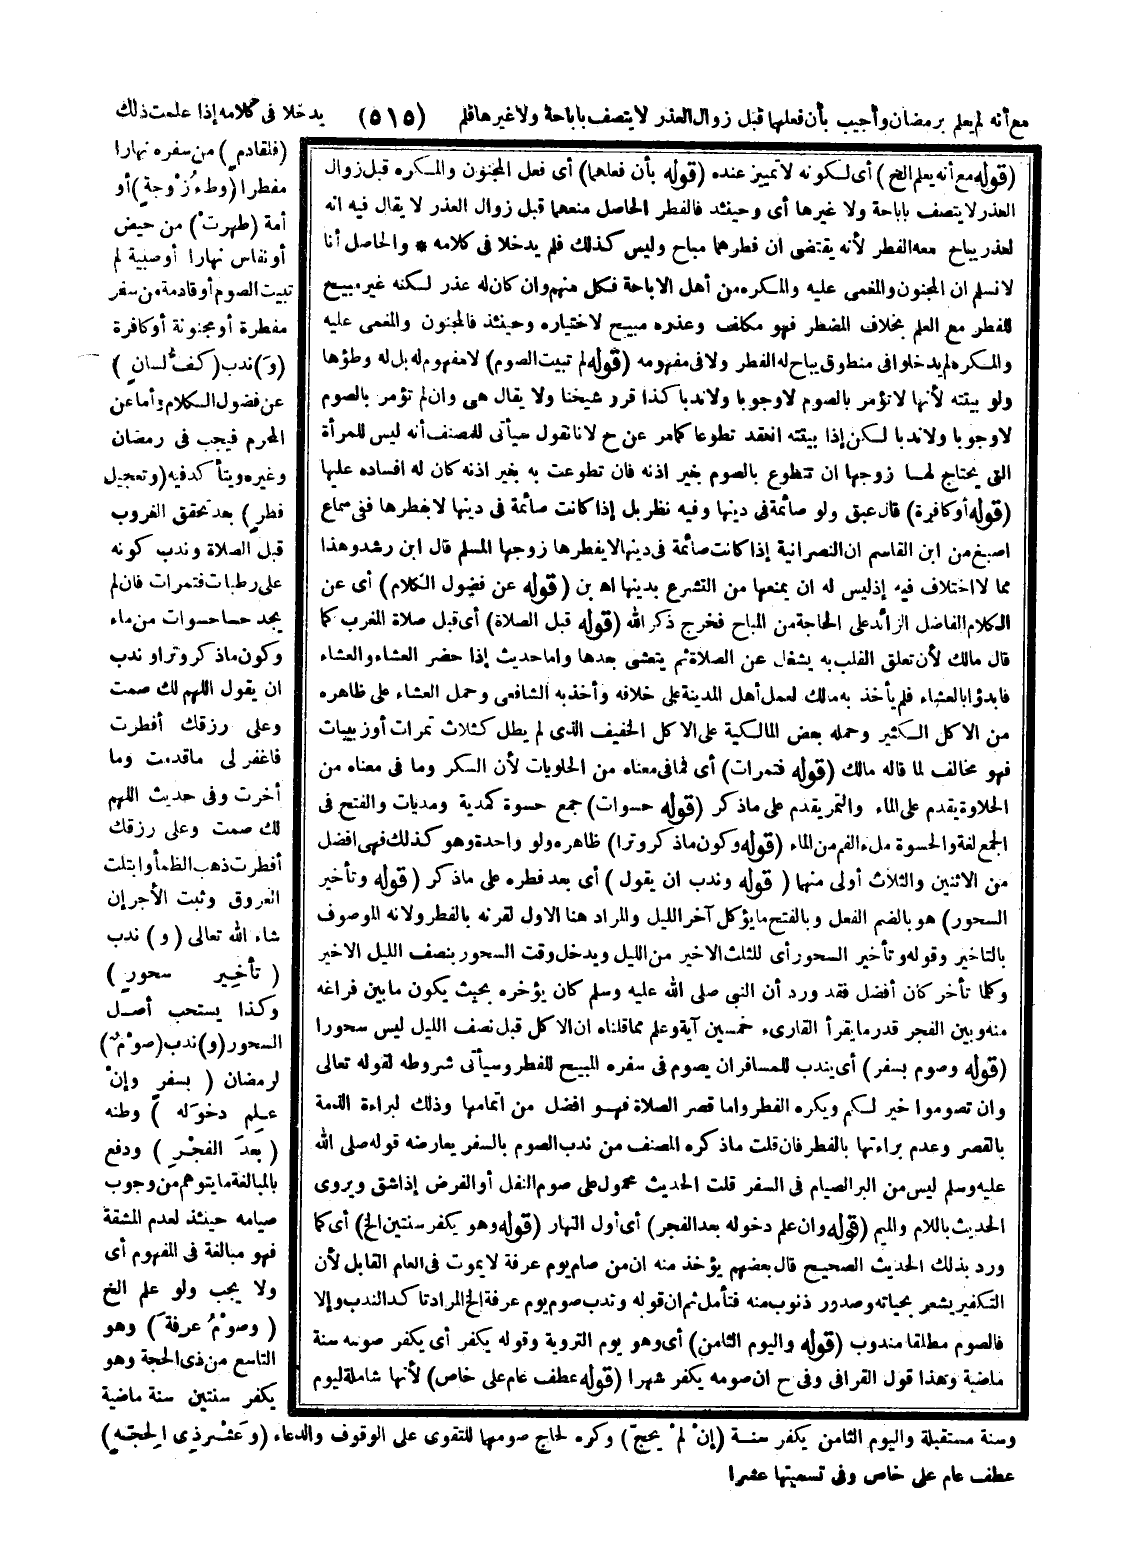 مع أنه لم يعلم برمضان وأجيب بأن فعلها قبل زوال العذر لا يتصف باباحة ولا غيرها فلم (٥١٥) يدخلا فى كلامه إذا علمت ذلك
(فلقادم) من سفره نهارا
مفطرا (وطءُ زوجة) أو
أمة (طهرت) من حيض
أو نفاس نهارا أو صبية لم
تبيت الصوم أو قادمة من سفر
مفطرة أو مجنونة أو كافرة
(وَ) ندب (كف لسان)
عن فضول الكلام وأما عن
المحرم فيجب فى رمضان
وغيره ويتأكد فيه (وتعجيل
فطر) بعد تحقق الغروب
قبل الصلاة وندب كونه
على رطبات فتمرات فان لم
يجد حسا حسوات من ماء
وكون ماذكر وترا و ندب
ان يقول اللهم لك صمت
وعلى رزقك أفطرت
فاغفر لى ماقدمت وما
أخرت وفى حديث اللهم
لك صمت وعلى رزقك
أفطرت ذهب الظمأ وابتلت
العروق وثبت الأجر إن
شاء الله تعالى (و) ندب
(تأخير سحور)
وكذا يستحب أصل
السحور (و) ندب (صوْمٌ)
لرمضان (بسفرٍ وإنْ
علِم دخوله) وطنه
(بعدَ الفجْرِ) ودفع
بالمبالغة مايتوهم من وجوب
صيامه حينئذ لعدم المشقة
فهو مبالغة فى المفهوم أى
ولا يجب ولو علم الخ
(وصوْمُ عرفةَ) وهو
التاسع من ذى الحجة وهو
يكفر سنتين سنة ماضية
(قوله مع أنه يعلم الخ) أى لكونه لا تمييز عنده (قوله بأن فعلهما) أى فعل المجنون والمكره قبل زوال
العذر لا يتصف باباحة ولا غيرها أى وحينئذ فالفطر الحاصل منهما قبل زوال العذر لا يقال فيه انه
لعذر يباح معه الفطر لأنه يقتضى ان فطرهما مباح وليس كذلك فلم يدخلا فى كلامه * والحاصل أنا
لا نسلم ان المجنون والمغمى عليه والمكره من أهل الاباحة فكل منهم وان كان له عذر لكنه غير مبيح
للفطر مع العلم بخلاف المضطر فهو مكلف وعذره مبيح لاختياره وحينئذ فالمجنون والمغمى عليه
والمكره لم يدخلوا فى منطوق يباح له الفطر ولا فى مفهومه (قوله لم تبيت الصوم) لا مفهوم له بل له وطؤها
ولو بيتته لأنها لا تؤمر بالصوم لا وجوبا ولا ندبا كذا قرر شيخنا ولا يقال هى وان لم تؤمر بالصوم
لا وجوبا ولا ندبا لكن إذا بيتته انعقد تطوعا كما مر عن ح لانا نقول سيأتى للمصنف أنه ليس للمرأة
التى يحتاج لها زوجها ان تتطوع بالصوم بغير اذنه فان تطوعت به بغير اذنه كان له افساده عليها
(قوله أو كافرة) قال عبق ولو صائمة فى دينها وفيه نظر بل إذا كانت صائمة فى دينها لا يفطرها ففى سماع
اصبغ من ابن القاسم ان النصرانية إذا كانت صائمة فى دينها لا يفطرها زوجها المسلم قال ابن رشد وهذا
مما لا اختلاف فيه إذ ليس له ان يمنعها من التشرع بدينها اه بن (قوله عن فضول الكلام) أى عن
الكلام الفاضل الزائد على الحاجة من المباح فخرج ذكر الله (قوله قبل الصلاة) أى قبل صلاة المغرب كما
قال مالك لأن تعلق القلب به يشغل عن الصلاة ثم يتعشى بعدها واما حديث إذا حضر العشاء والعشاء
فابدؤا بالعشاء فلم يأخذ به مالك لعمل أهل المدينة على خلافه وأخذ به الشافعى وحمل العشاء على ظاهره
من الاكل الكثير وحمله بعض المالكية على الاكل الخفيف الذى لم يطل كثلاث تمرات أو زبيبات
فهو مخالف لما قاله مالك (قوله فتمرات) أى فمافى معناه من الحلويات لأن السكر وما فى معناه من
الحلاوة يقدم على الماء والتمر يقدم على ماذكر (قوله حسوات) جمع حسوة كمدية ومديات والفتح فى
الجمع لغة والحسوة ملء الفم من الماء (قوله وكون ماذكر وترا) ظاهره ولو واحدة وهو كذلك فهى افضل
من الاثنين والثلاث أولى منها (قوله وندب ان يقول) أى بعد فطره على ماذكر (قوله وتأخير
السحور) هو بالضم الفعل وبالفتح ما يؤكل آخر الليل والمراد هنا الاول لقرنه بالفطر ولانه الموصوف
بالتاخير وقوله وتأخير السحور أى للثلث الاخير من الليل ويدخل وقت السحور بنصف الليل الاخير
وكلما تأخر كان أفضل فقد ورد أن النبى صلى الله عليه وسلم كان يؤخره بحيث يكون مابين فراغه
منه وبين الفجر قدر ما يقرأ القارىء خمسين آية وعلم مما قلناه ان الاكل قبل نصف الليل ليس سحورا
(قوله وصوم بسفر) أى يندب للمسافر ان يصوم فى سفره المبيح للفطر وسيأتى شروطه لقوله تعالى
وان تصوموا خير لكم ويكره الفطر واما قصر الصلاة فهو افضل من اتمامها وذلك لبراءة الذمة
بالقصر وعدم براءتها بالفطر فان قلت ماذكره المصنف من ندب الصوم بالسفر يعارضه قوله صلى الله
عليه وسلم ليس من البر الصيام فى السفر قلت الحديث محمول على صوم النفل أو الفرض إذا شق ويروى
الحديث باللام والميم (قوله وان علم دخوله بعد الفجر) أى أول النهار (قوله وهو يكفر سنتين الخ) أى كما
ورد بذلك الحديث الصحيح قال بعضهم يؤخذ منه ان من صام يوم عرفة لا يموت فى العام القابل لأن
التكفير يشعر بحياته وصدور ذنوب منه فتأمل ثم ان قوله وندب صوم يوم عرفة الخ المراد تاكد الندب وإلا
فالصوم مطلقا مندوب (قوله واليوم الثامن) أى وهو يوم التروية وقوله يكفر أى يكفر صومه سنة
ماضية وهذا قول القرافى وفى ح ان صومه يكفر شهرا (قوله عطف عام على خاص) لأنها شاملة ليوم
وسنة مستقبلة واليوم الثامن يكفر سنة (إنْ لمْ يحجّ) وكره لحاج صومها للتقوى على الوقوف والدعاء (وَعَشْرِ ذِى الحجّةِ)
عطف عام على خاص وفى تسميتها عشرا